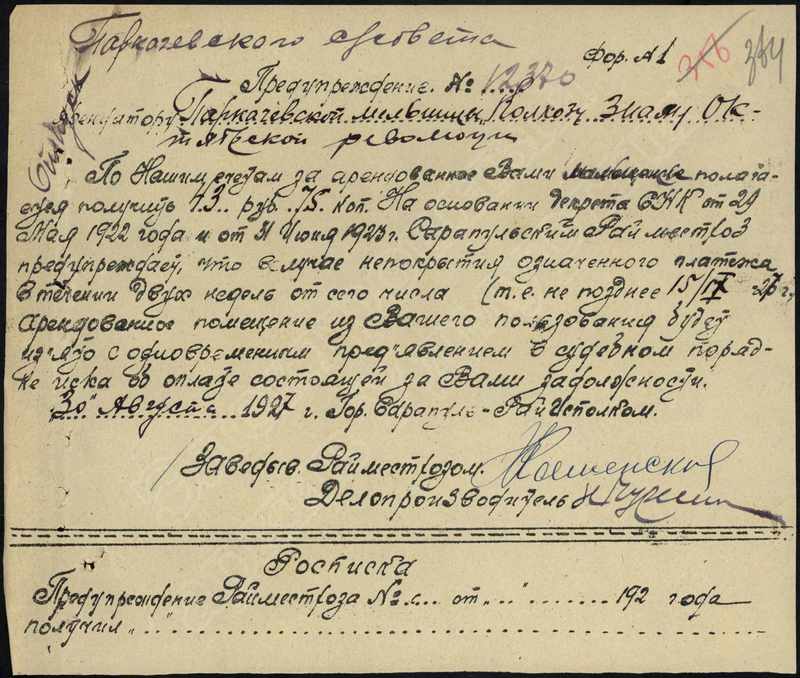 Паркачевского с/совета
Фор. А1
316
384
Предупреждение. № 12370
Арендатору Паркачевской мельницы Колхозу Знамя Ок-
тябрьской революции
По Нашим учетам за арендованное Вами полага-
ется получить 73 руб. 75 коп. На основании декрета СНК от 29
Мая 1922 года и от 21 Июня 1923 г. Сарапульский Райместхоз
предупреждает, что в случае непокрытия означенного платежа
в течении двух недель от сего числа (т.е. не позднее 15/IX 27 г.
арендованное помещение из Вашего пользования будет
изъято с одновременным пред'явлением в судебном поряд-
ке иска об оплате состоящей за Вами задолжности.
"30" Августа 1927 г. Гор. Сарапуль-Райисполком.
Заведыв. Райместхозом.
Делопроизводитель
Росписка
Предупреждение Райместхоза № от " " 192 года
получил